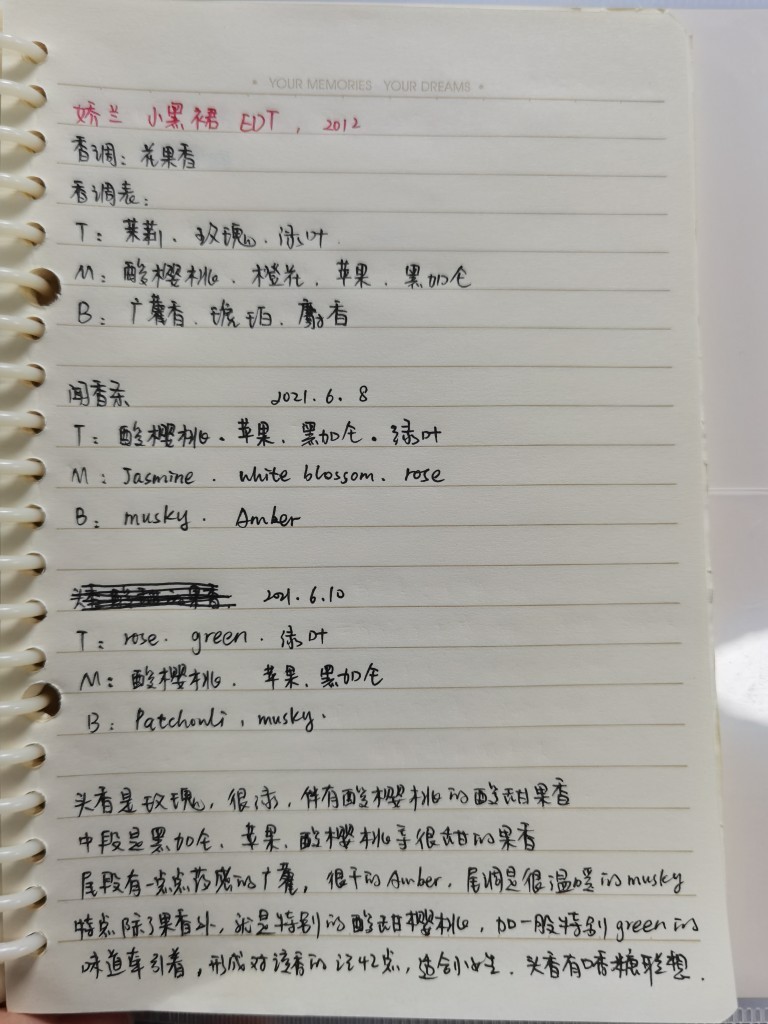 • YOUR MEMORIES YOUR DREAMS •
娇兰 小黑裙 EDT, 2012
香调: 花果香
香调表:
T: 茉莉、玫瑰、绿叶
M: 酸樱桃、橙花、苹果、黑加仑
B: 广藿香、琥珀、麝香
闻香条 2021.6.8
T: 酸樱桃、苹果、黑加仑、绿叶
M: Jasmine. white blossom. rose
B: musky. Amber
2021.6.10
T: rose. green. 绿叶
M: 酸樱桃、苹果、黑加仑
B: Patchouli, musky.
头香是玫瑰, 很绿, 伴有酸樱桃的酸甜果香
中段是黑加仑、苹果、酸樱桃等很甜的果香
尾段有一点点药感的广藿, 很干的Amber, 尾调是很温暖的musky
特点除了果香外, 就是特别的酸甜樱桃, 加一股特别green的
味道牵引着, 形成对该香的记忆点, 适合小女生. 头香有口香糖联想.